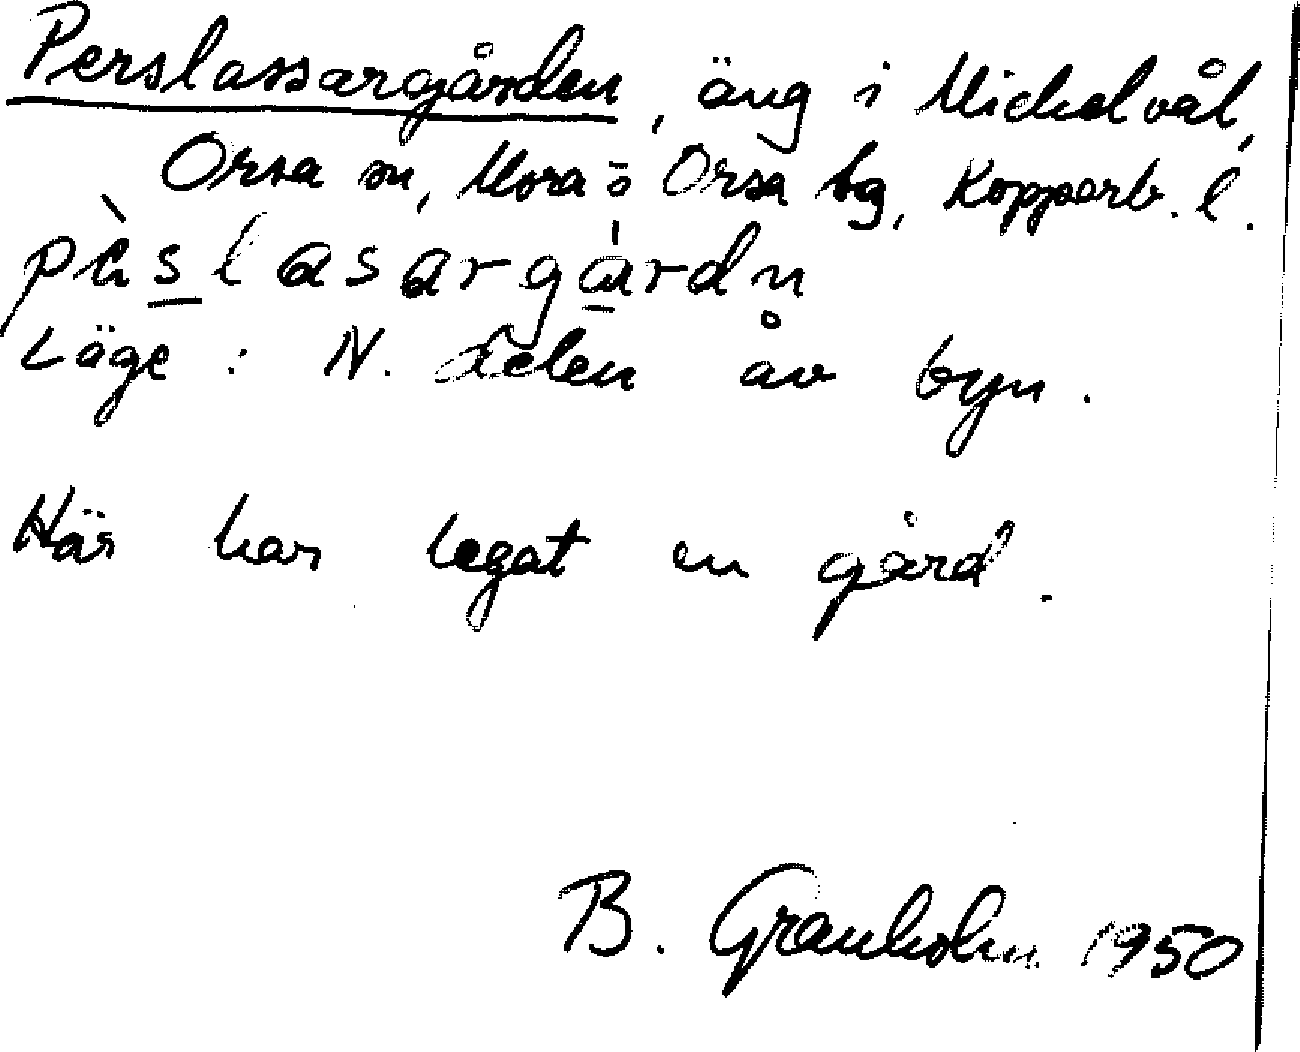 Perslassargården, äng i Mickelvål,
Orsa sn, Mora o Orsa tg, Kopparb. l.
pàslasargárdn
Läge : N. delen av byn.
Här har legat en gård.
B. Granholm 1950